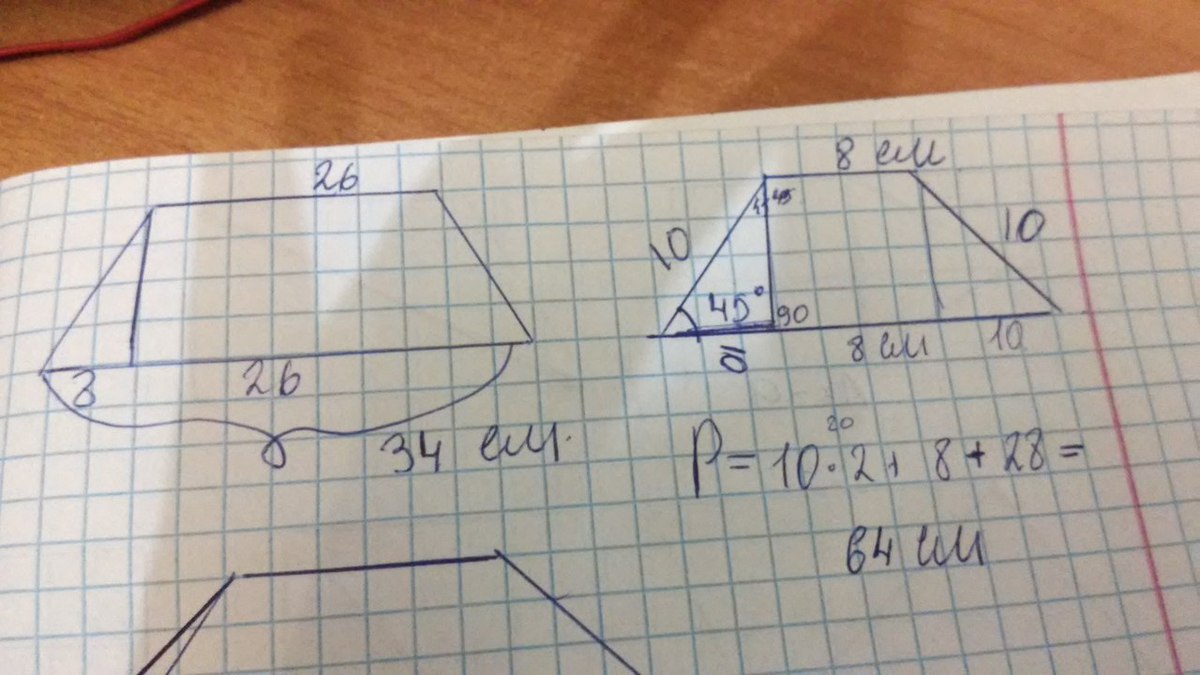 26
8 см
45
10
10
45°
90
10
8 см
10
8
26
34 см.
20
P = 10 · 2 + 8 + 28 =
64 см